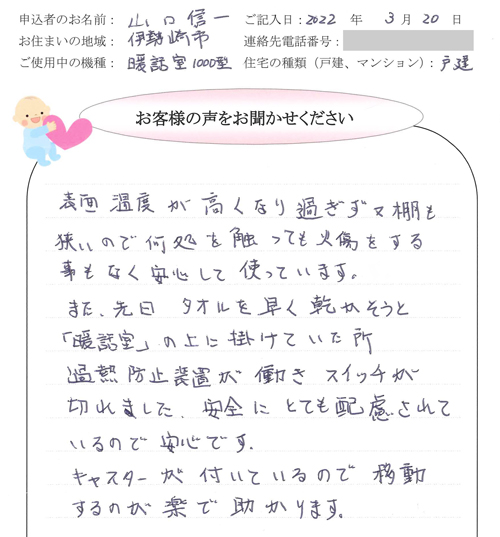 申込者のお名前： 山口信一 ご記入日：2022 年 3 月 20 日
お住まいの地域： 伊勢崎市 連絡先電話番号：
ご使用中の機種： 暖話室1000型 住宅の種類（戸建、マンション）：戸建
お客様の声をお聞かせください
表面温度が高くなり過ぎず又棚も
狭いので何処を触っても火傷をする
事もなく安心して使っています。
また、先日 タオルを早く乾かそうと
「暖話室」の上に掛けていた所
過熱防止装置が働き スイッチが
切れました、安全にとても配慮されて
いるので安心です。
キャスターが付いているので移動
するのが楽で助かります。